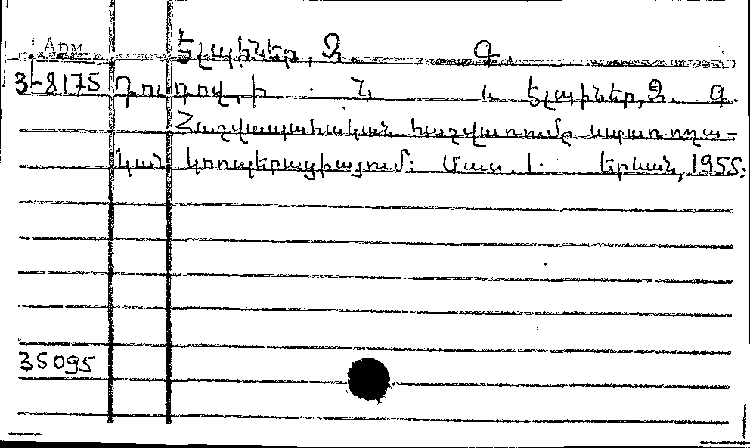 Арм Էլպիներ, Զ. Գ.
3-8175 Դուդով, Ի. Ն. և Էլպիներ, Զ. Գ.
Հաշվապահական հաշվառումը սպառողա-
կան կոոպերացիայում: Մաս. 1. Երևան, 1955:
35095